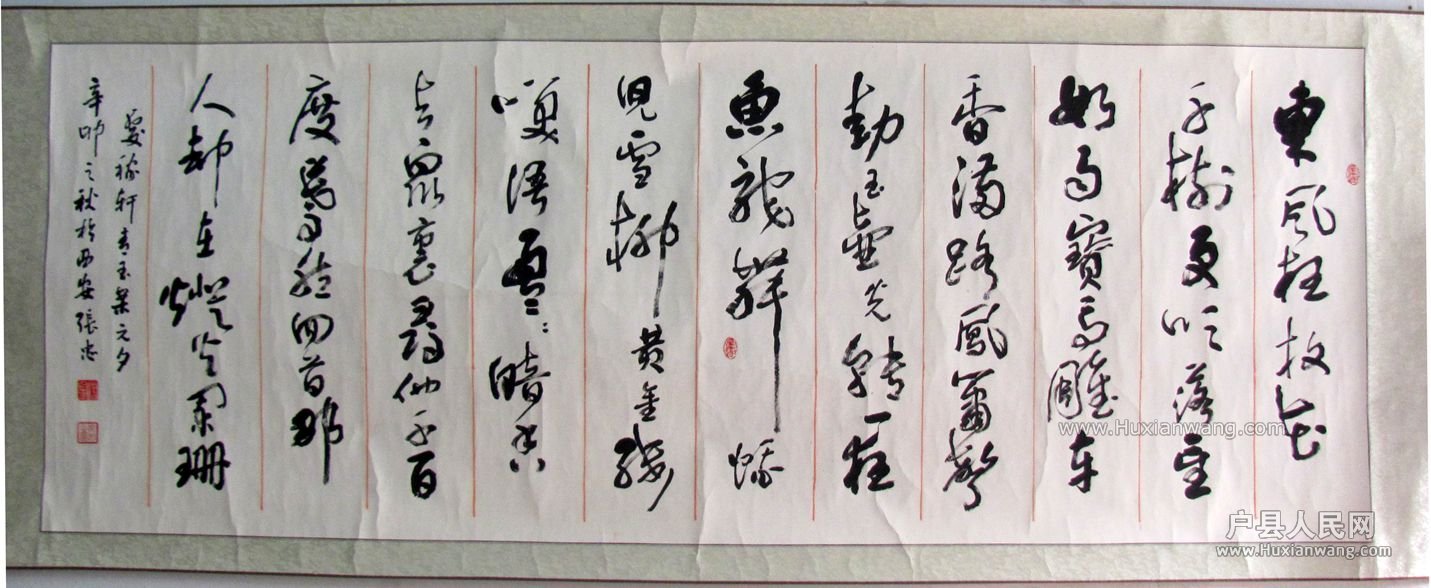 東風夜放花
千樹更吹落星
如雨寶馬雕車
香滿路鳳簫聲
動玉壺光轉一夜
魚龍舞 蛾
兒雪柳黃金縷
笑語盈〻暗香
去眾裏尋他千百
度驀然回首那
人却在燈火闌珊
處 稼軒青玉案元夕
辛卯之秋於西安張忠
www.Huxianwang.com
户县人民网
www.Huxianwang.com